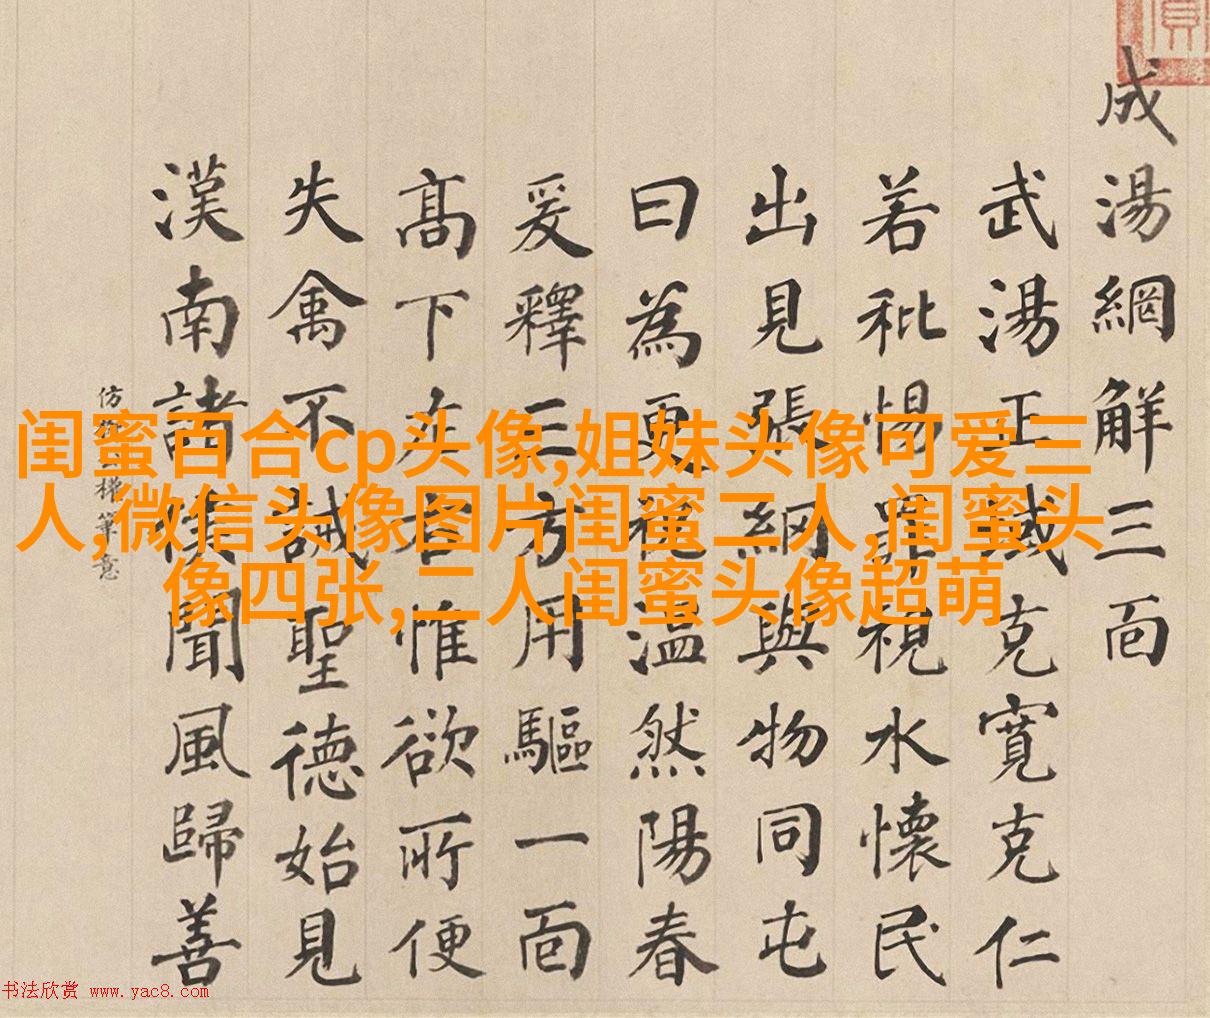 成湯網解三面
武湯正域克寬克仁
若秕惕視水懷民
出見張網與物同屯
曰為更祝溫然陽春
爰釋三方用驅一面
高下左右惟欲所便
失禽不誡聖德始見
漢南諸侯聞風歸善
仿權筆意
闺蜜百合cp头像,姐妹头像可爱三
人,微信头像图片闺蜜二人,闺蜜头
像四张,二人闺蜜头像超萌
书法欣赏 www.yac8.com